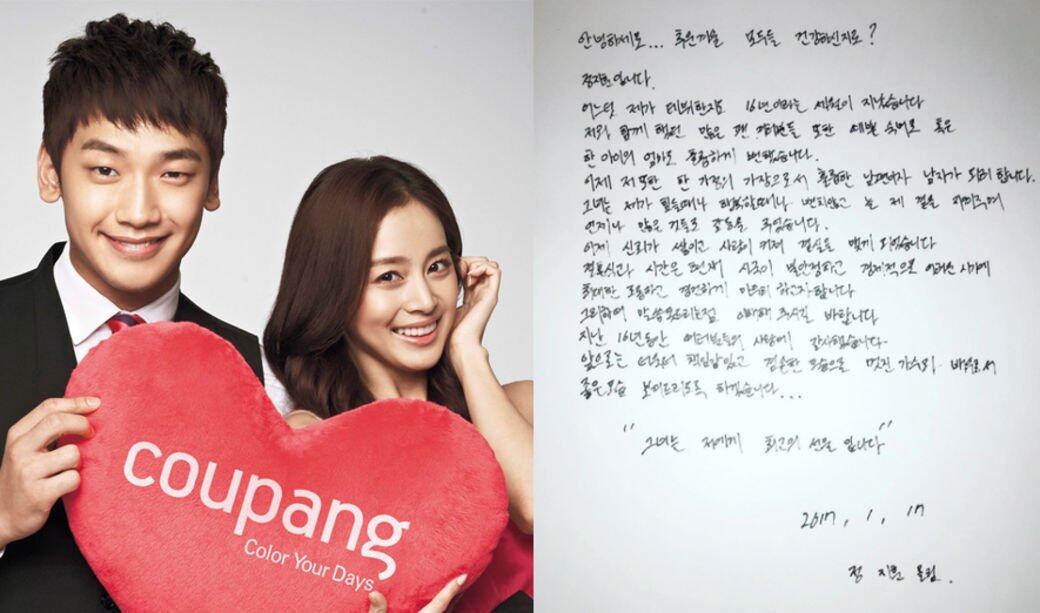 coupang
Color Your Days
안녕하세요... 추운겨울 모두들 건강하신지요?
정지훈입니다.
어느덧 제가 데뷔한지도 16년이라는 세월이 지났습니다
저와 함께 했던 많은 팬 여러분들 또한 예쁜 숙녀로 혹은
한 아이의 엄마로 훌륭하게 변했습니다.
이제 저 또한 한 가정의 가장으로서 훌륭한 남편이자 남자가 되려 합니다.
그녀는 제가 힘들때나 행복할때나 변치않고 늘 제 곁을 지켜주며
언제나 많은 것들로 감동을 주었습니다.
이제 신뢰가 쌓이고 사랑이 커져 결실을 맺게 되었습니다
결혼식과 시간은 현재 시국이 불안정하고 경제적으로 어려운 시기에
최대한 조용하고 경건하게 마무리 하고자합니다
그리하여 말씀못드리는점 이해해 주시길 바랍니다
지난 16년동안 여러분들의 사랑에 감사했습니다.
앞으로는 더욱더 책임감있고 겸손한 모습으로 멋진 가수와 배우로서
좋은모습 보여드리도록 하겠습니다...
"그녀는 저에게 최고의 선물 입니다"
2017, 1, 17
정 지훈 올림.